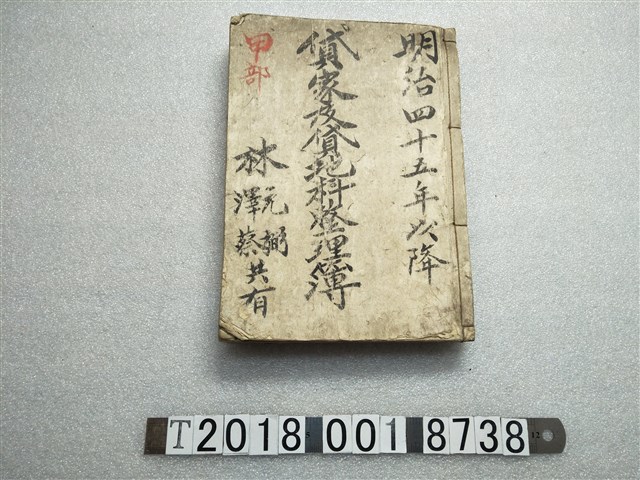 明治四十五年以降
貸家及貸地料整理簿
甲部
林
元弼
澤蔡共有
T2018 001 8738
12